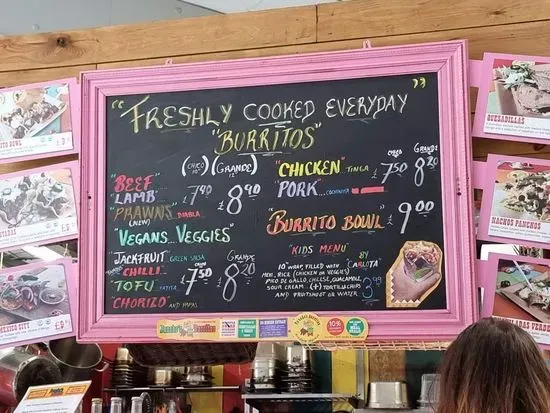 "FRESHLY COOKED EVERYDAY"
"BURRITOS"
(CHICO) (GRANDE)
10" 12"
"BEEF"
LAMB
PRAWNS DIABLA
(NEW)
£7.90 £8.90
"CHICKEN" TINGA
PORK... COCHINITA
CHICO GRANDE
£7.50 £8.20
"VEGANS...VEGGIES"
JACKFRUIT GREEN SALSA
"CHILLI"
TOFU TAYITA
"CHORIZO" AND
CHICO £7.50
GRANDE £8.20
BURRITO BOWL £9.00
"KIDS MENU" BY CARLITA
10" WRAP, FILLED WITH
MEH, RICE (CHICKEN OR VEGGIES)
PICO DE GALLO, CHEESE, GUACAMOLE,
SOUR CREAM... (+) TORTILLA CHIPS
AND FRUITSHOOT OR WATER
10%
BOWL
MEXICO CITY
QUESADILLAS
NACHOS PANCHOS
ENCHILADAS